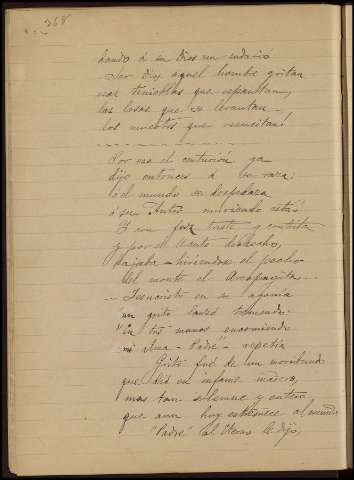 368
dando á su Dios un sudario
Ser Dios aquel hombre gritan
esas tinieblas que espantan,
las losas que se levantan
los muertos que resucitan!
Por eso el centurión ya
dijo entonces á su raza:
ó el mundo se despedaza
ó su Autor muriendo está!
Y con faz triste y contrita
y por el llanto deshecho,
bajaba hiriéndose el pecho
del monte el Areopagita...
Jesucristo en su agonía
un grito lanzó tremendo:
"En tus manos encomiendo
mi alma - Padre" - repetía
Grito fué de un moribundo
que dió en infame madero,
mas tan solemne y entero
que aun hoy estremece al mundo
"Padre" al Eterno le dijo,